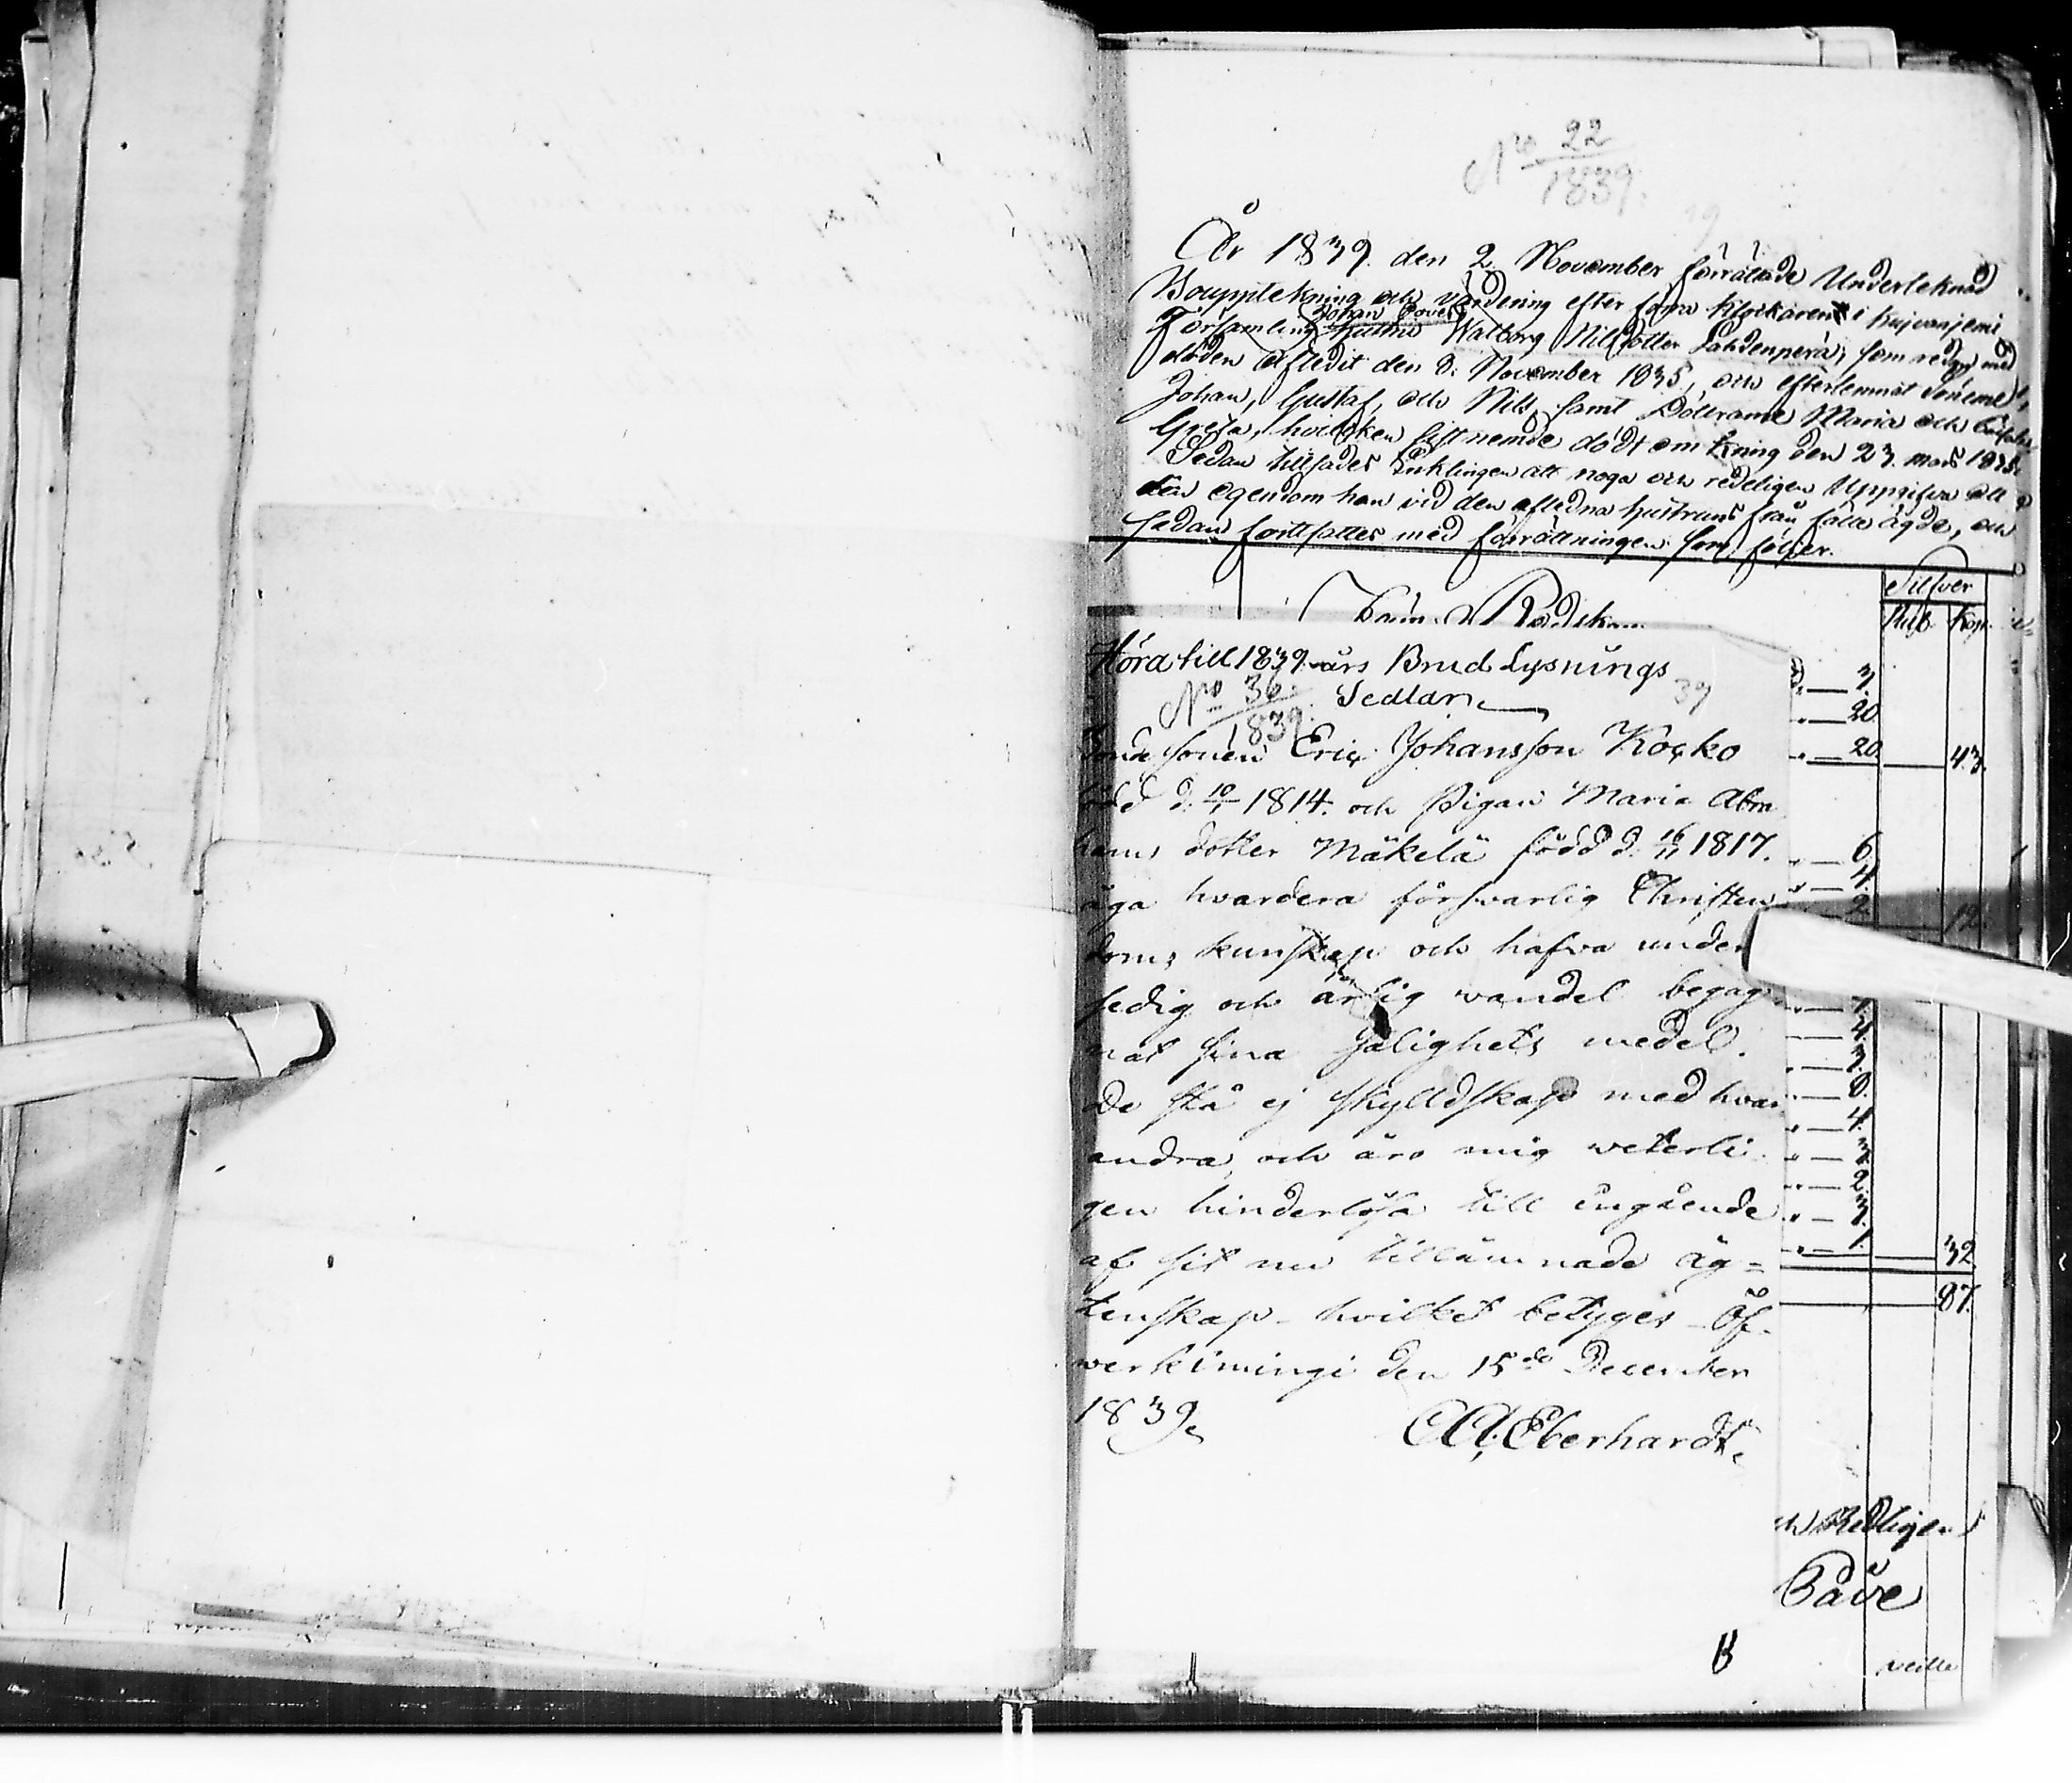 No 22
1839.
År 1839. den 2. November förrättade Underteknad
Boupptekning och värdering efter förra Klockarens i Kuivanjemi
Johan Pove
Församling Hustru Walborg Nilsdotter Lahdenperä, som redan med
döden afledit den 8. November 1835, och efterlemnat Sönerne
Johan, Gustaf, och Nils, samt Döttrarne Maria och
Greta, hvilcken sist nemde dödt omkring den 23. mars 1838.
Sedan tillsades Enklingen att noga och redeligen Uppgifva all
den egendom han vid den afledna hustruns frånfälle ägde, och
sedan fortsattes med förrättningen som följer.
Silfver
Rub. Kop.
Höra till 1839. års Brud Lysnings
No 36. Sedlar 39
1839.
Bonde sonen Eric Johansson Kocko
född d. 10/1 1814. och Pigan Maria Abra
hams dotter Mäkelä född d. 16/11 1817.
äga hvardera försvarlig Christen
doms kunskap och hafva under
sedig och ärlig vandel begag
nat sina Salighets medel.
De stå ej skylldskap med hvar
andra, och äro mig veterli
gen hinderlösa till ingående
af sit nu tillämnade äg=
tenskap - hvilket betyges Öf
verkimingi den 15de December
1839.
C A Eberhardt.
7.
20.
20. 43.
6.
4.
2. 12.
7.
4.
3.
8.
4.
3.
2.
3.
1. 32
87.
Redligen
Påve